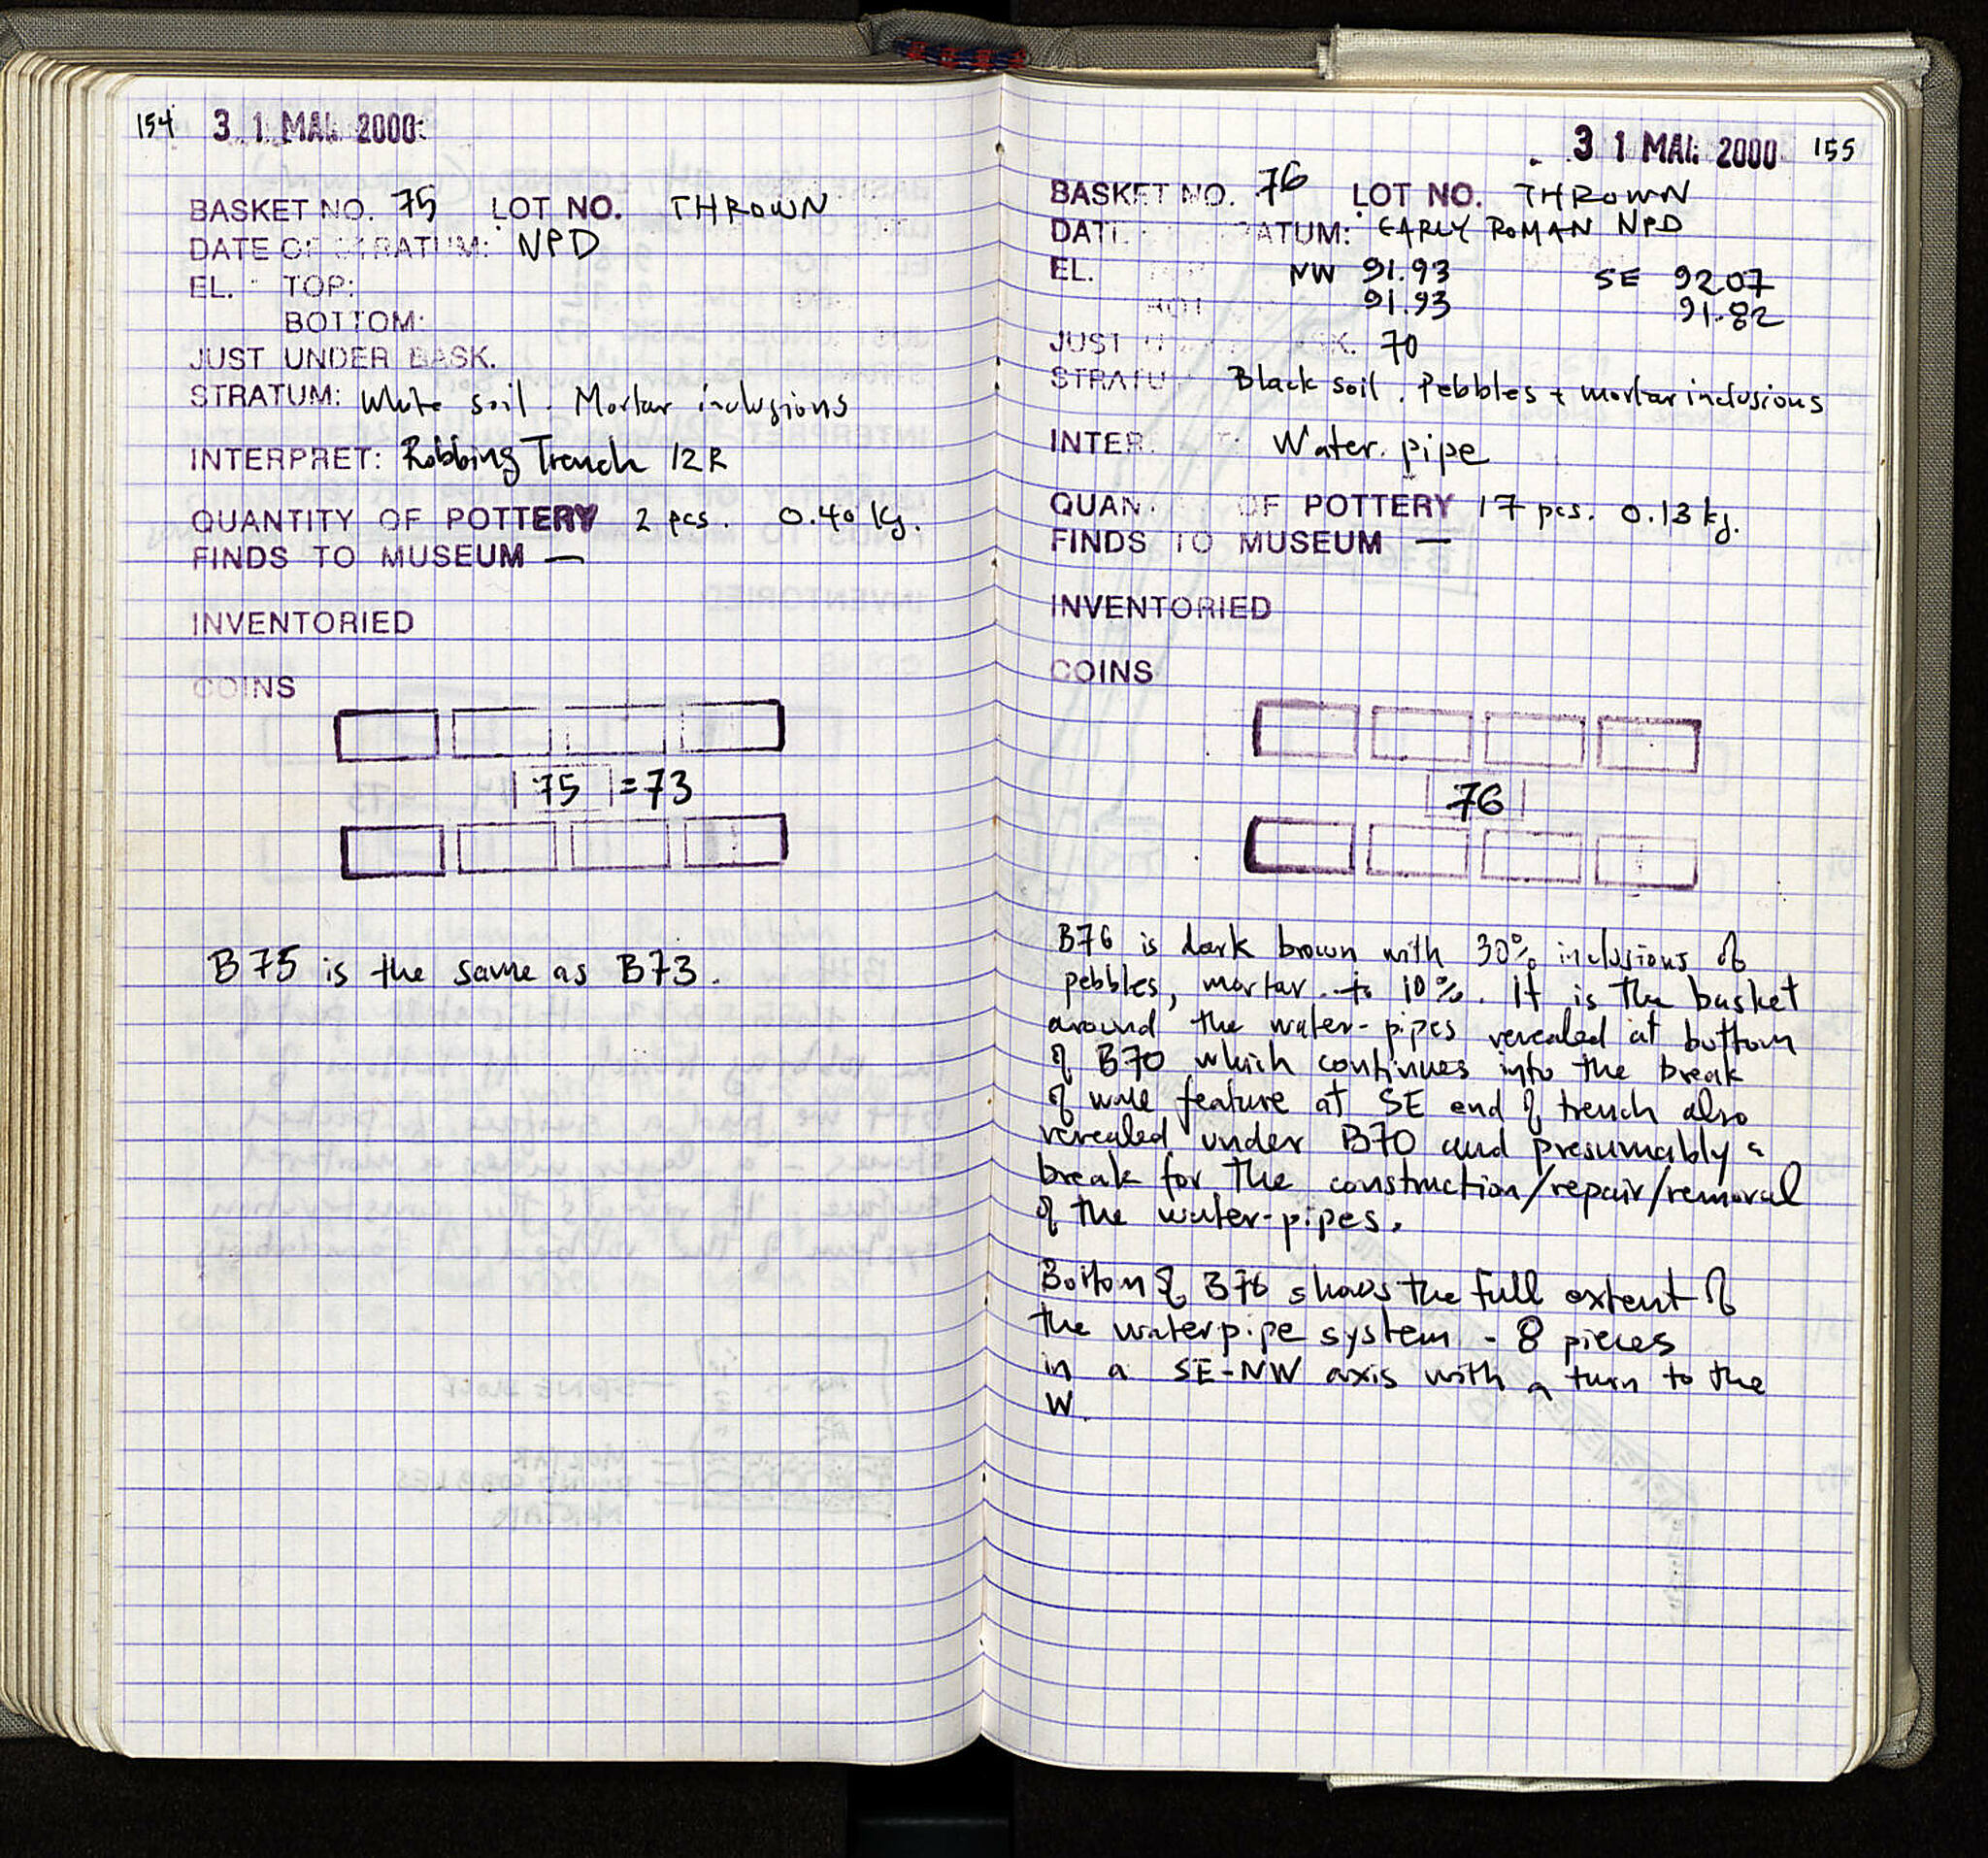 154 3 1 MAI. 2000
BASKET NO. 75 LOT NO. THROWN
DATE OF STRATUM: NPD
EL. TOP:
BOTTOM:
JUST UNDER BASK.
STRATUM: White soil. Mortar inclusions
INTERPRET: Robbing Trench 12R
QUANTITY OF POTTERY 2 pcs. 0.40 kg.
FINDS TO MUSEUM —
INVENTORIED
COINS
75 = 73
B75 is the same as B73.
3 1 MAI. 2000 155
BASKET NO. 76 LOT NO. THROWN
DATE STRATUM: EARLY ROMAN NPD
EL. NW 91.93 SE 92.07
91.93 91.82
JUST BASK. 70
STRATU Black soil. Pebbles + mortar inclusions
INTER Water pipe
QUAN OF POTTERY 17 pcs. 0.13 kg.
FINDS TO MUSEUM —
INVENTORIED
COINS
76
B76 is dark brown with 30% inclusions of
pebbles, mortar to 10%. It is the basket
around the water-pipes revealed at bottom
of B70 which continues into the break
of wall feature at SE end of trench also
revealed under B70 and presumably a
break for the construction/repair/removal
of the water-pipes.
Bottom of B76 shows the full extent of
the waterpipe system - 8 pieces
in a SE-NW axis with a turn to the
W.